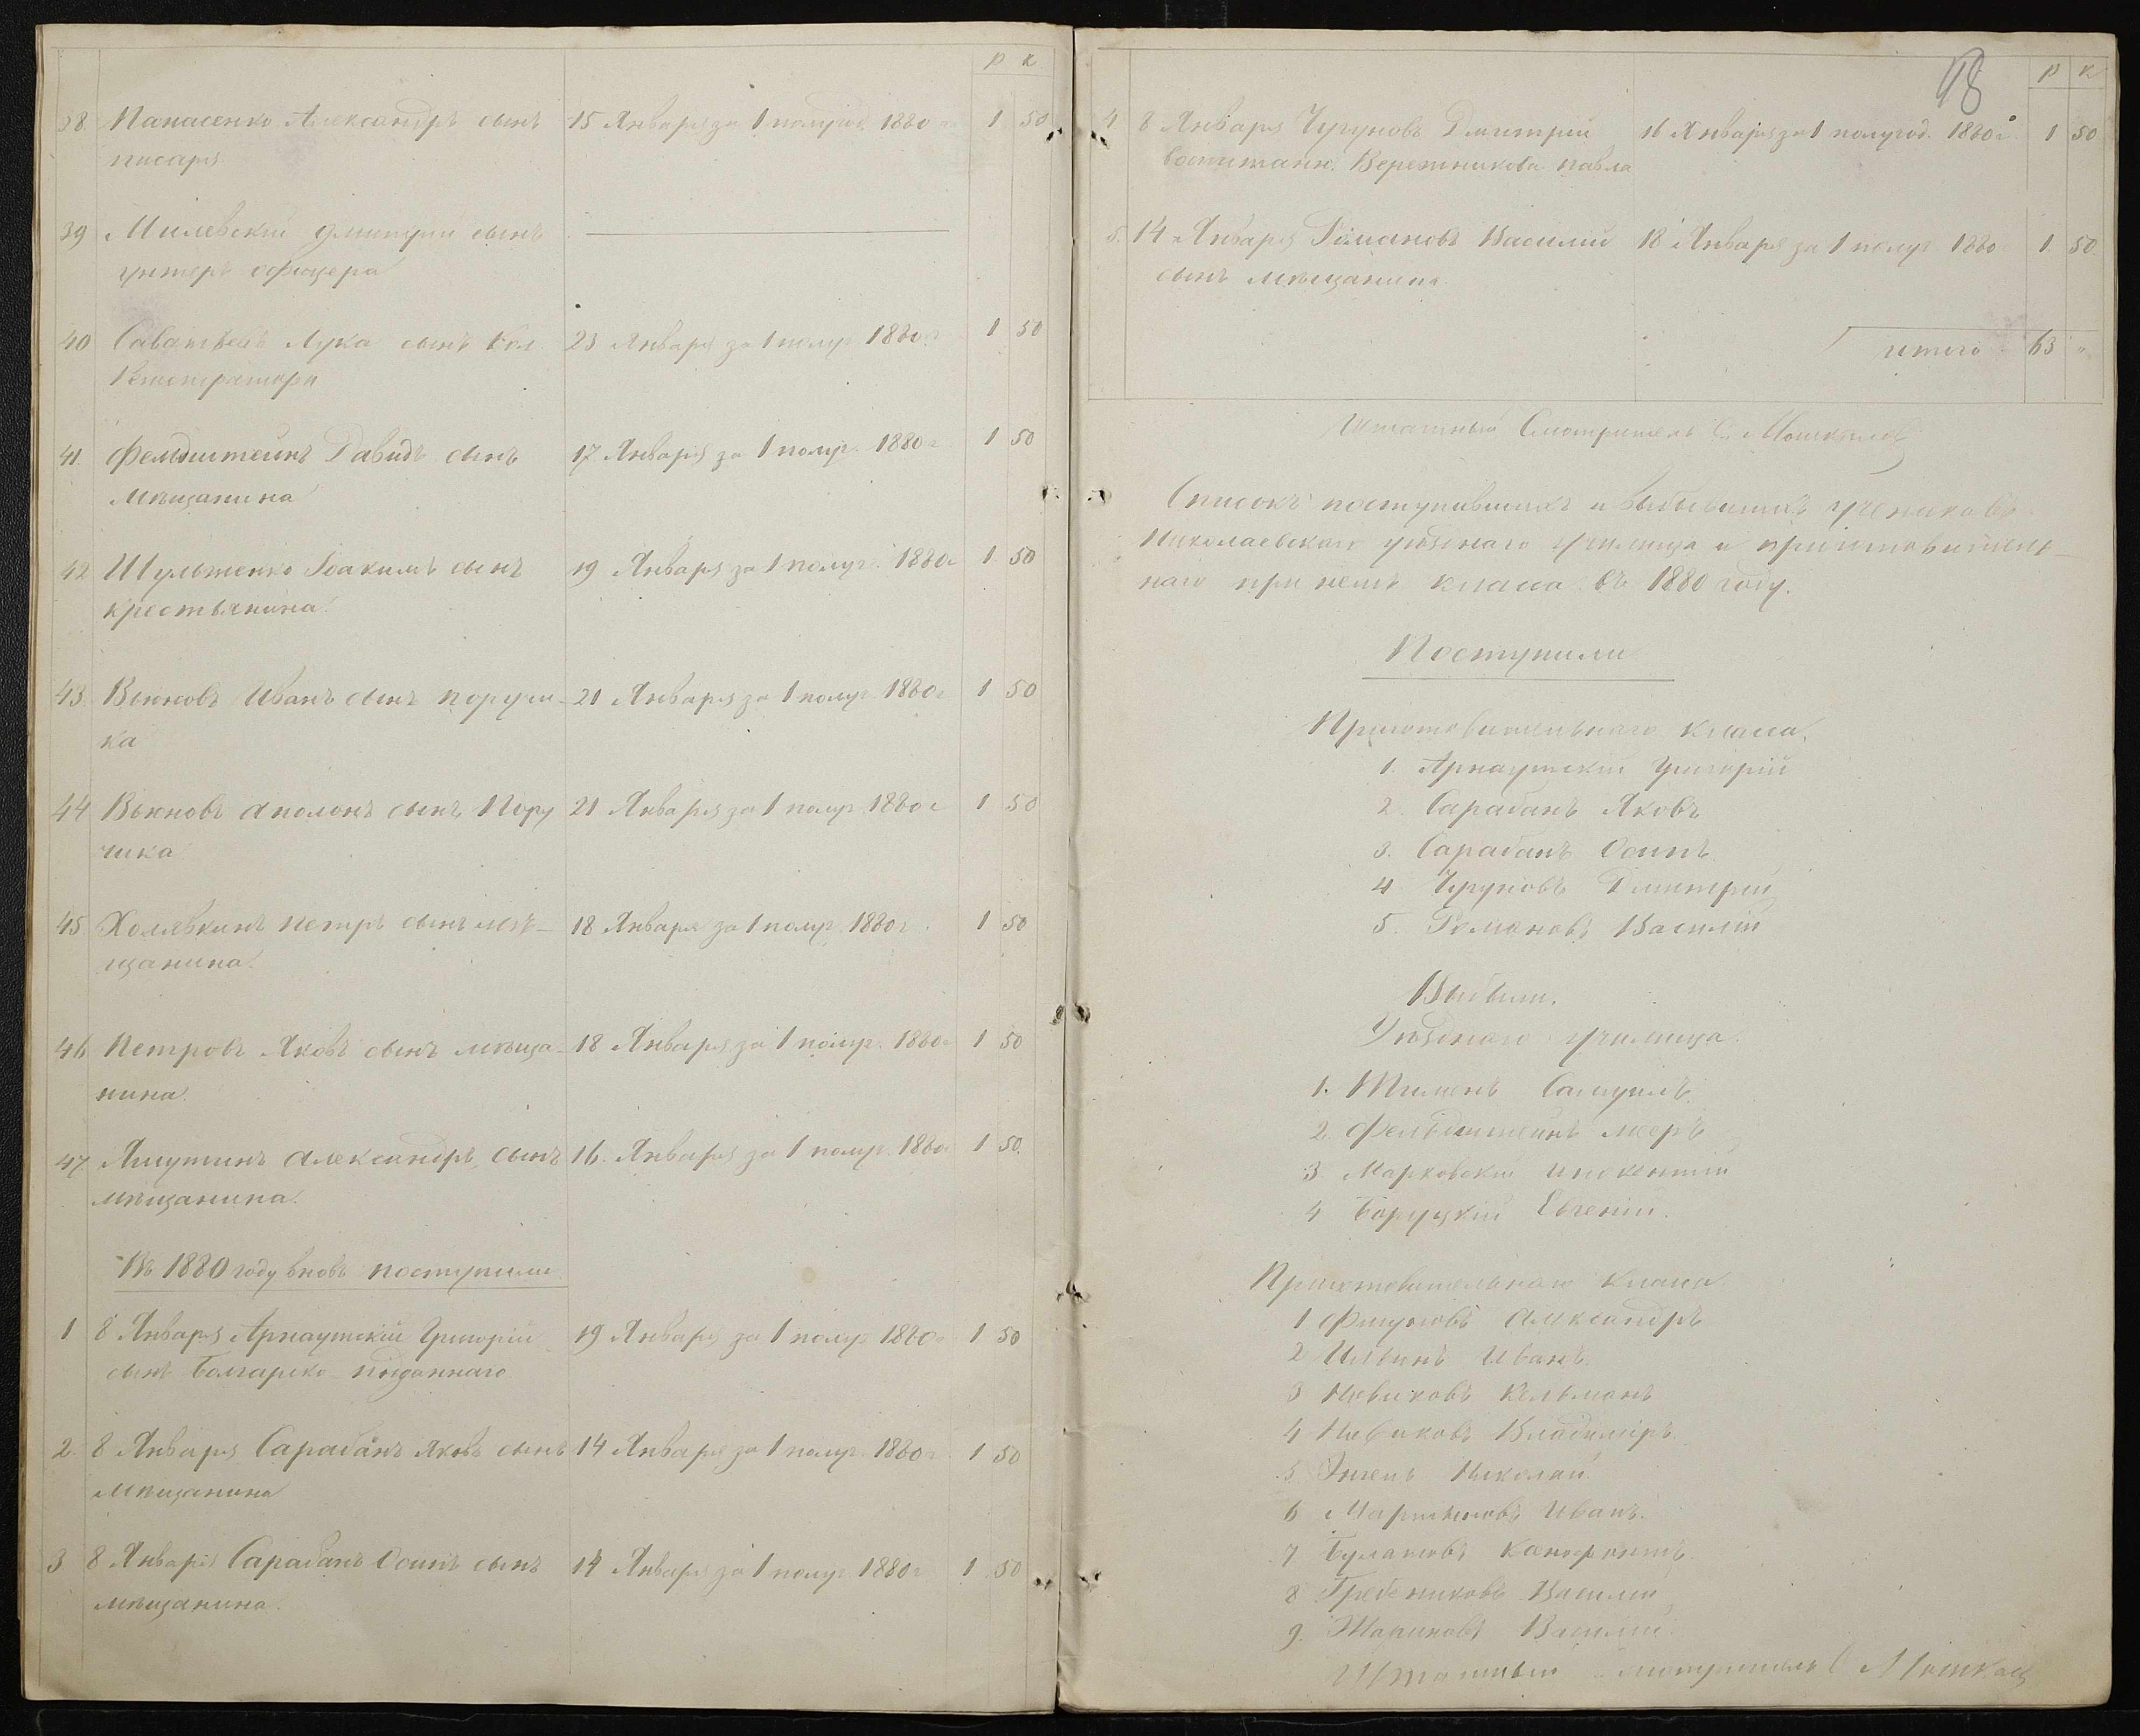 р к
38. Панасенко Александръ сынъ 15 Января за 1 полугод. 1880 г. 1 50
писаря
39 Милевскій Дмитрій сынъ
унтеръ офицера
40 Саватѣевъ Лука сынъ Кол. 23 Января за 1 полуг. 1880 г. 1 50
Регистратора
41. Фельдштейнъ Давидъ сынъ 17 Января за 1 полуг. 1880 г. 1 50
Мѣщанина
42 Шульженко Іоакимъ сынъ 19 Января за 1 полуг. 1880 г. 1 50
крестьянина.
43. Вьюновъ Иванъ сынъ поручи- 21 Января за 1 полуг. 1880 г. 1 50
ка
44 Вьюновъ Аполонъ сынъ Пору 21 Января за 1 полуг. 1880 г. 1 50
чика
45 Холявкинъ Петръ сынъ мѣ- 18 Января за 1 полуг. 1880 г. 1 50
щанина.
46 Петровъ Яковъ сынъ мѣща- 18 Января за 1 полуг. 1880 г. 1 50
нина.
47 Яшутинъ Александръ сынъ 16. Января за 1 полуг. 1880 г. 1 50.
мѣщанина.
Въ 1880 году вновь поступили
1 8 Января Арнаутскій Григорій 19 Января за 1 полуг. 1880 г. 1 50
сынъ Болгарско-подданнаго
2. 8 Января Сарабанъ Яковъ сынъ 14 Января за 1 полуг. 1880 г. 1 50
мѣщанина
3 8 Января Сарабанъ Осипъ сынъ 14 Января за 1 полуг. 1880 г. 1 50
мѣщанина.
р к
4 8 Января Чугуновъ Дмитрій 16 Января за 1 полугод. 1880 г. 1 50
воспитанн. Веретникова Павла
5. 14 Января Романовъ Василій 18 Января за 1 полуг. 1880 1. 50.
сынъ мѣщанина
итого 63 "
Штатный Смотритель С.
Списокъ поступившихъ и выбывшихъ учениковъ
Николаевскаго уѣзднаго училища и приготовитель-
наго при немъ класса въ 1880 году.
Поступили
Приготовительнаго класса.
1. Арнаутскій Григорій
2. Сарабанъ Яковъ
3. Сарабанъ Осипъ
4. Чугуновъ Дмитрій
5. Романовъ Василій
Выбыли.
Уѣзднаго училища.
1. Самуилъ
2. Фельдштейнъ Мееръ
3 Марковскій Инокентій
4 Боруцкій Евгеній.
Приготовительнаго класса.
1 Александръ
2 Ильинъ Иванъ.
3 Новиковъ Кельманъ
4 Новиковъ Владиміръ
5 Энгель Николай
6 Мартыновъ Иванъ.
7 Булатовъ
8 Гребениковъ Василій
9. Василій.
Штатный Смотритель С.